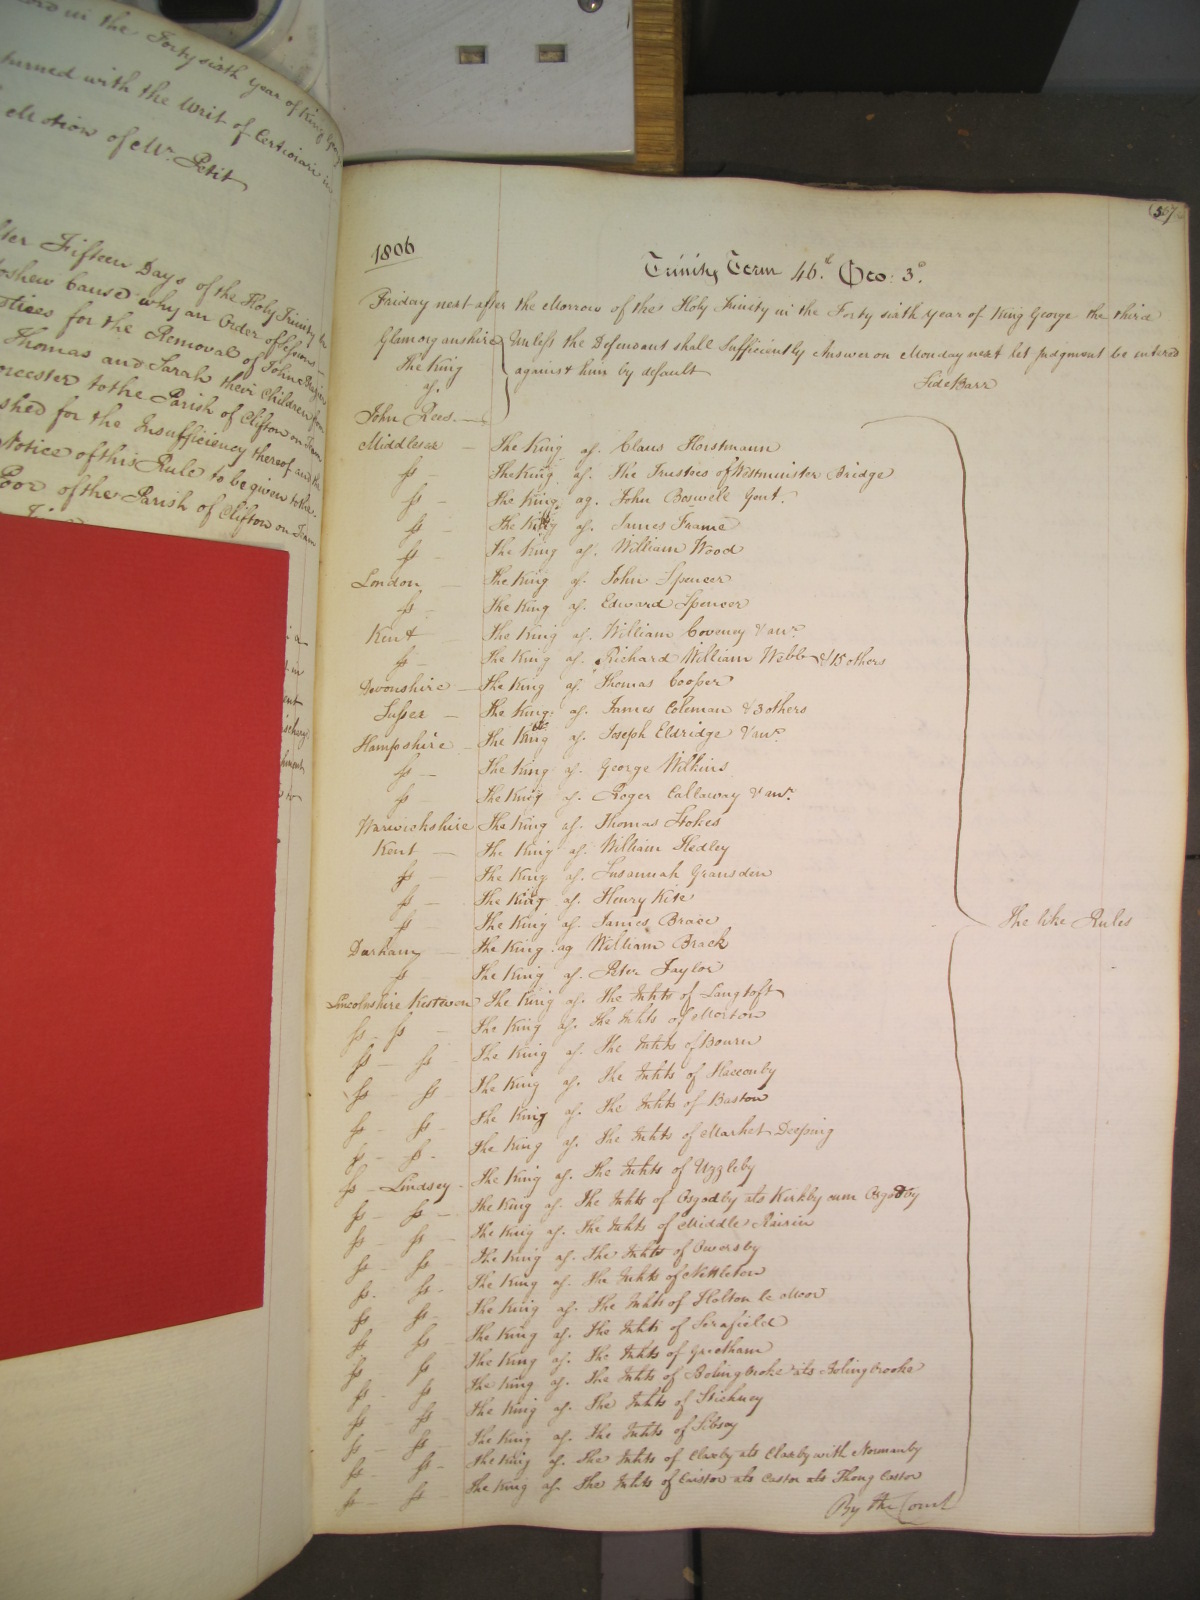 ord in the Forty sixth year of King
turned with the Writ of Certiorari in
Motion of Mr. Petit
fter Fifteen Days of the Holy Trinity to
toshew Cause why an Order of Sessions
stices for the Removal of John
Thomas and Sarah their Children from
ncester to the Parish of Clifton on
shed for the Insufficiency thereof and the
Notice of this Rule to be given to the
Poor of the Parish of Clifton on Team
587
1806
Trinity Term 46th Geo: 3d.
Friday next after the Morrow of the Holy Trinity in the Forty sixth Year of King George the third
Glamorganshire Unless the Defendant shall Sufficiently Answer on Monday next let judgment be entered
The King against him by default
agt. Side Barr
John Rees
Middlesex – The King agt. Claus Horstmann
ss – The King agt. The Trustees of Westminster Bridge
ss – The King agt. John Boswell Gent.
ss – The King agt. James Frame
ss – The King agt. William Wood
London – The King agt. John Spencer
ss – The King agt. Edward Spencer
Kent – The King agt. William Coveney & anr.
ss – The King agt. Richard William Webb & 15 others
Devonshire – The King agt. Thomas Cooper
Sussex – The King agt. James Coleman & 3 others
Hampshire – The King agt. Joseph Eldridge & anr.
ss – The King agt. George Wilkins
ss – The King agt. Roger Callaway & anr.
Warwickshire The King agt. Thomas Stokes
Kent – The King agt. William Hedley
ss – The King agt. Susannah Gransden
ss – The King agt. Henry Kite
ss The King agt. James Brace
The like Rules
Durham – The King agt. William Brack
ss The King agt. Peter Taylor
Lincolnshire Kesteven The King agt. The Inhts of Langtoft
ss – ss – The King agt. The Inhts of Morton
ss – ss – The King agt. The Inhts of Bourn
ss – ss – The King agt. The Inhts of Hacconby
ss – ss – The King agt. The Inhts of Baston
ss – ss – The King agt. The Inhts of Market Deeping
ss – Lindsey – The King agt. The Inhts of Uggleby
ss – ss – The King agt. The Inhts of Osgodby als Kirkby cum Osgodby
ss – ss – The King agt. The Inhts of Middle Raisin
ss – ss – The King agt. The Inhts of Owersby
ss – ss – The King agt. The Inhts of Nettleton
ss – ss – The King agt. The Inhts of Holton le Moor
ss – ss – The King agt. The Inhts of Scrafield
ss – ss – The King agt. The Inhts of Greetham
ss – ss The King agt. The Inhts of Bolingbroke als Bolingbrooke
ss – ss – The King agt. The Inhts of Stickney
ss – ss – The King agt. The Inhts of Sibsey
ss – ss – The King agt. The Inhts of Claxby als Claxby with Normanby
ss – ss – The King agt. The Inhts of Caistor als Castor als Thong Castor
By the Court